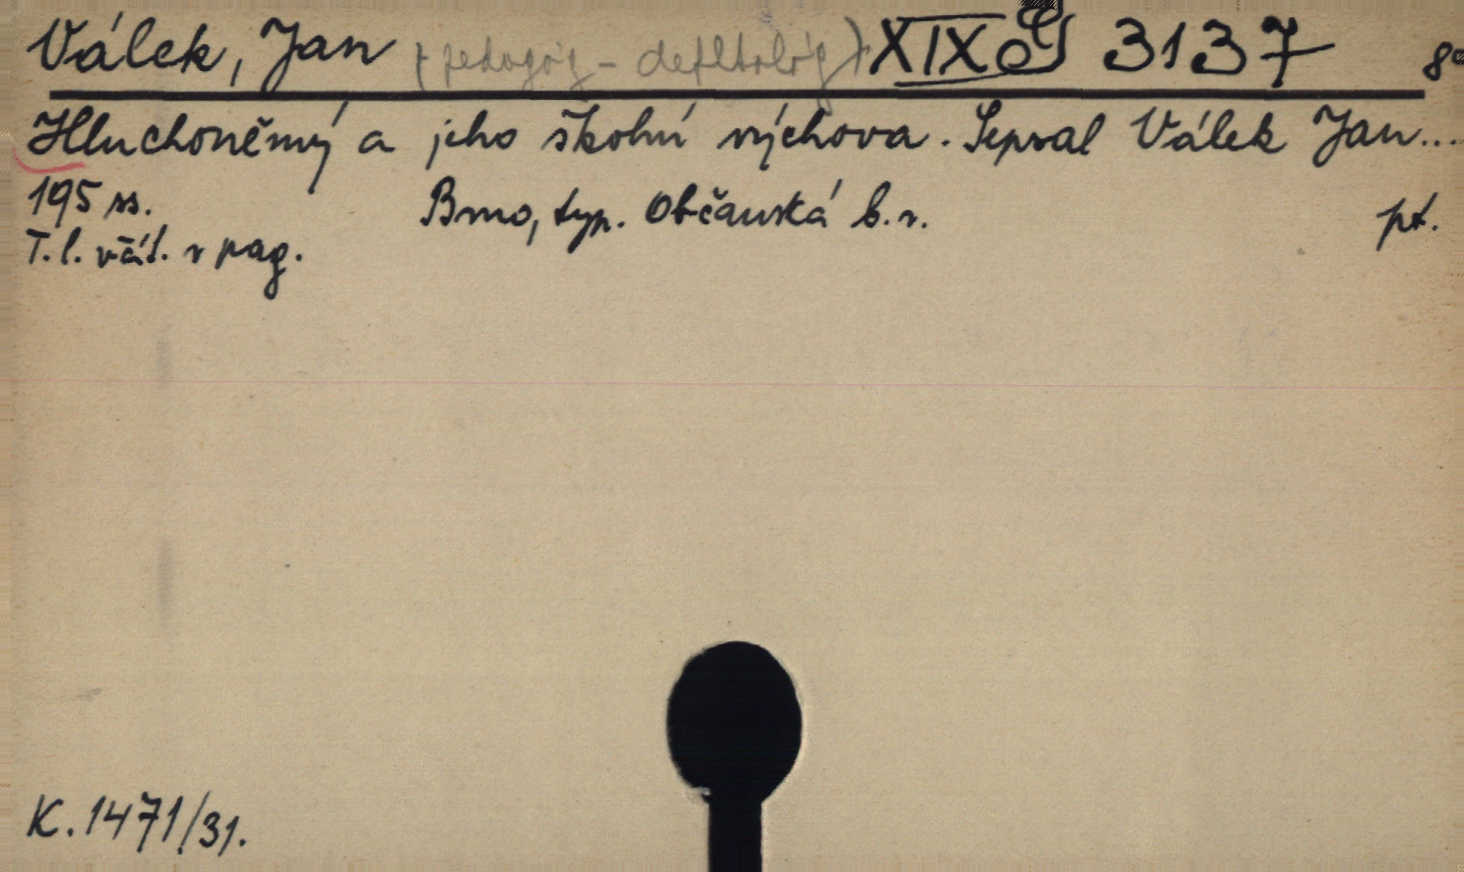 Válek, Jan (pedagóg - defektológ) XIX G 3137 8°
Hluchoněmý a jeho školní výchova. Sepsal Válek Jan...
195 ss. Brno, typ. Občanská b.r. pt.
T. l. včít. v pag.
K. 1471/31.